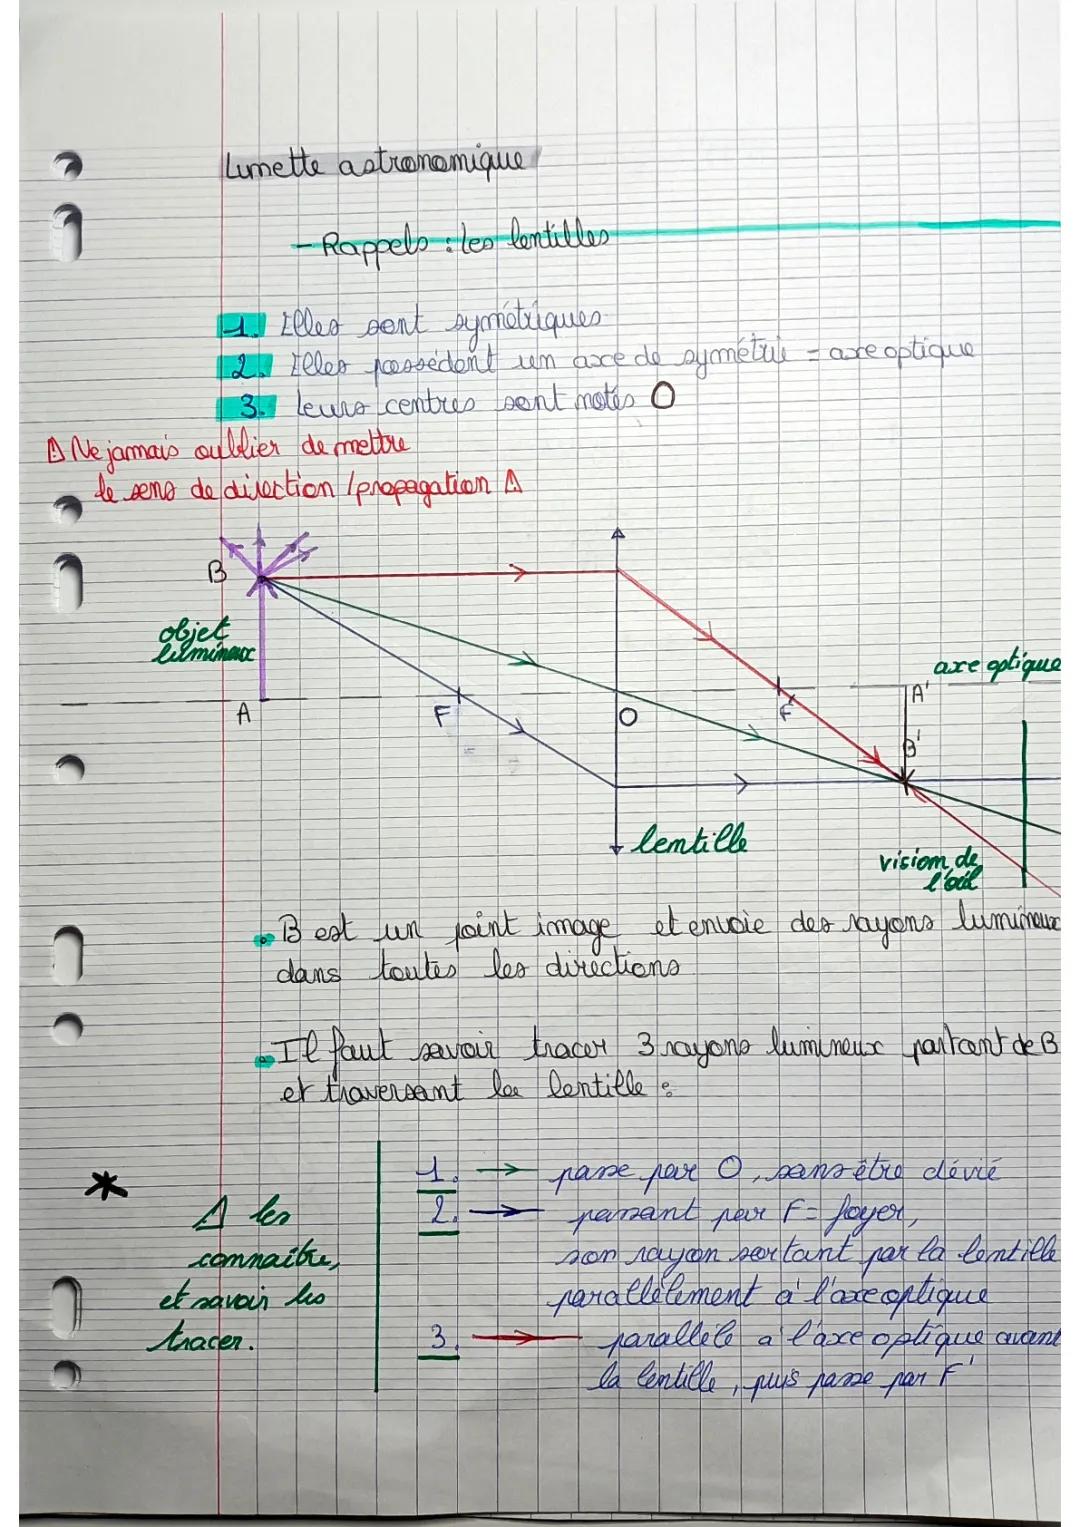 Lunette astronomique
- Rappels : les lentilles
1. Elles sont symétriques
2. Elles possèdent un axe de symétrie = axe optique
3. leurs centres sont notés O
⚠ Ne jamais oublier de mettre
le sens de direction / propagation ⚠
B
objet
lumineux
A
F
O
F'
axe optique
A'
B'
lentille
vision de
l'œil
• B est un point image et envoie des rayons lumineux
dans toutes les directions
• Il faut savoir tracer 3 rayons lumineux partant de B
et traversant la lentille :
* ⚠ les
connaître,
et savoir les
tracer.
1. → passe par O, sans être dévié
2. → passant par F = foyer,
son rayon sortant par la lentille
parallèlement à l'axe optique
3. → parallèle à l'axe optique avant
la lentille, puis passe par F'